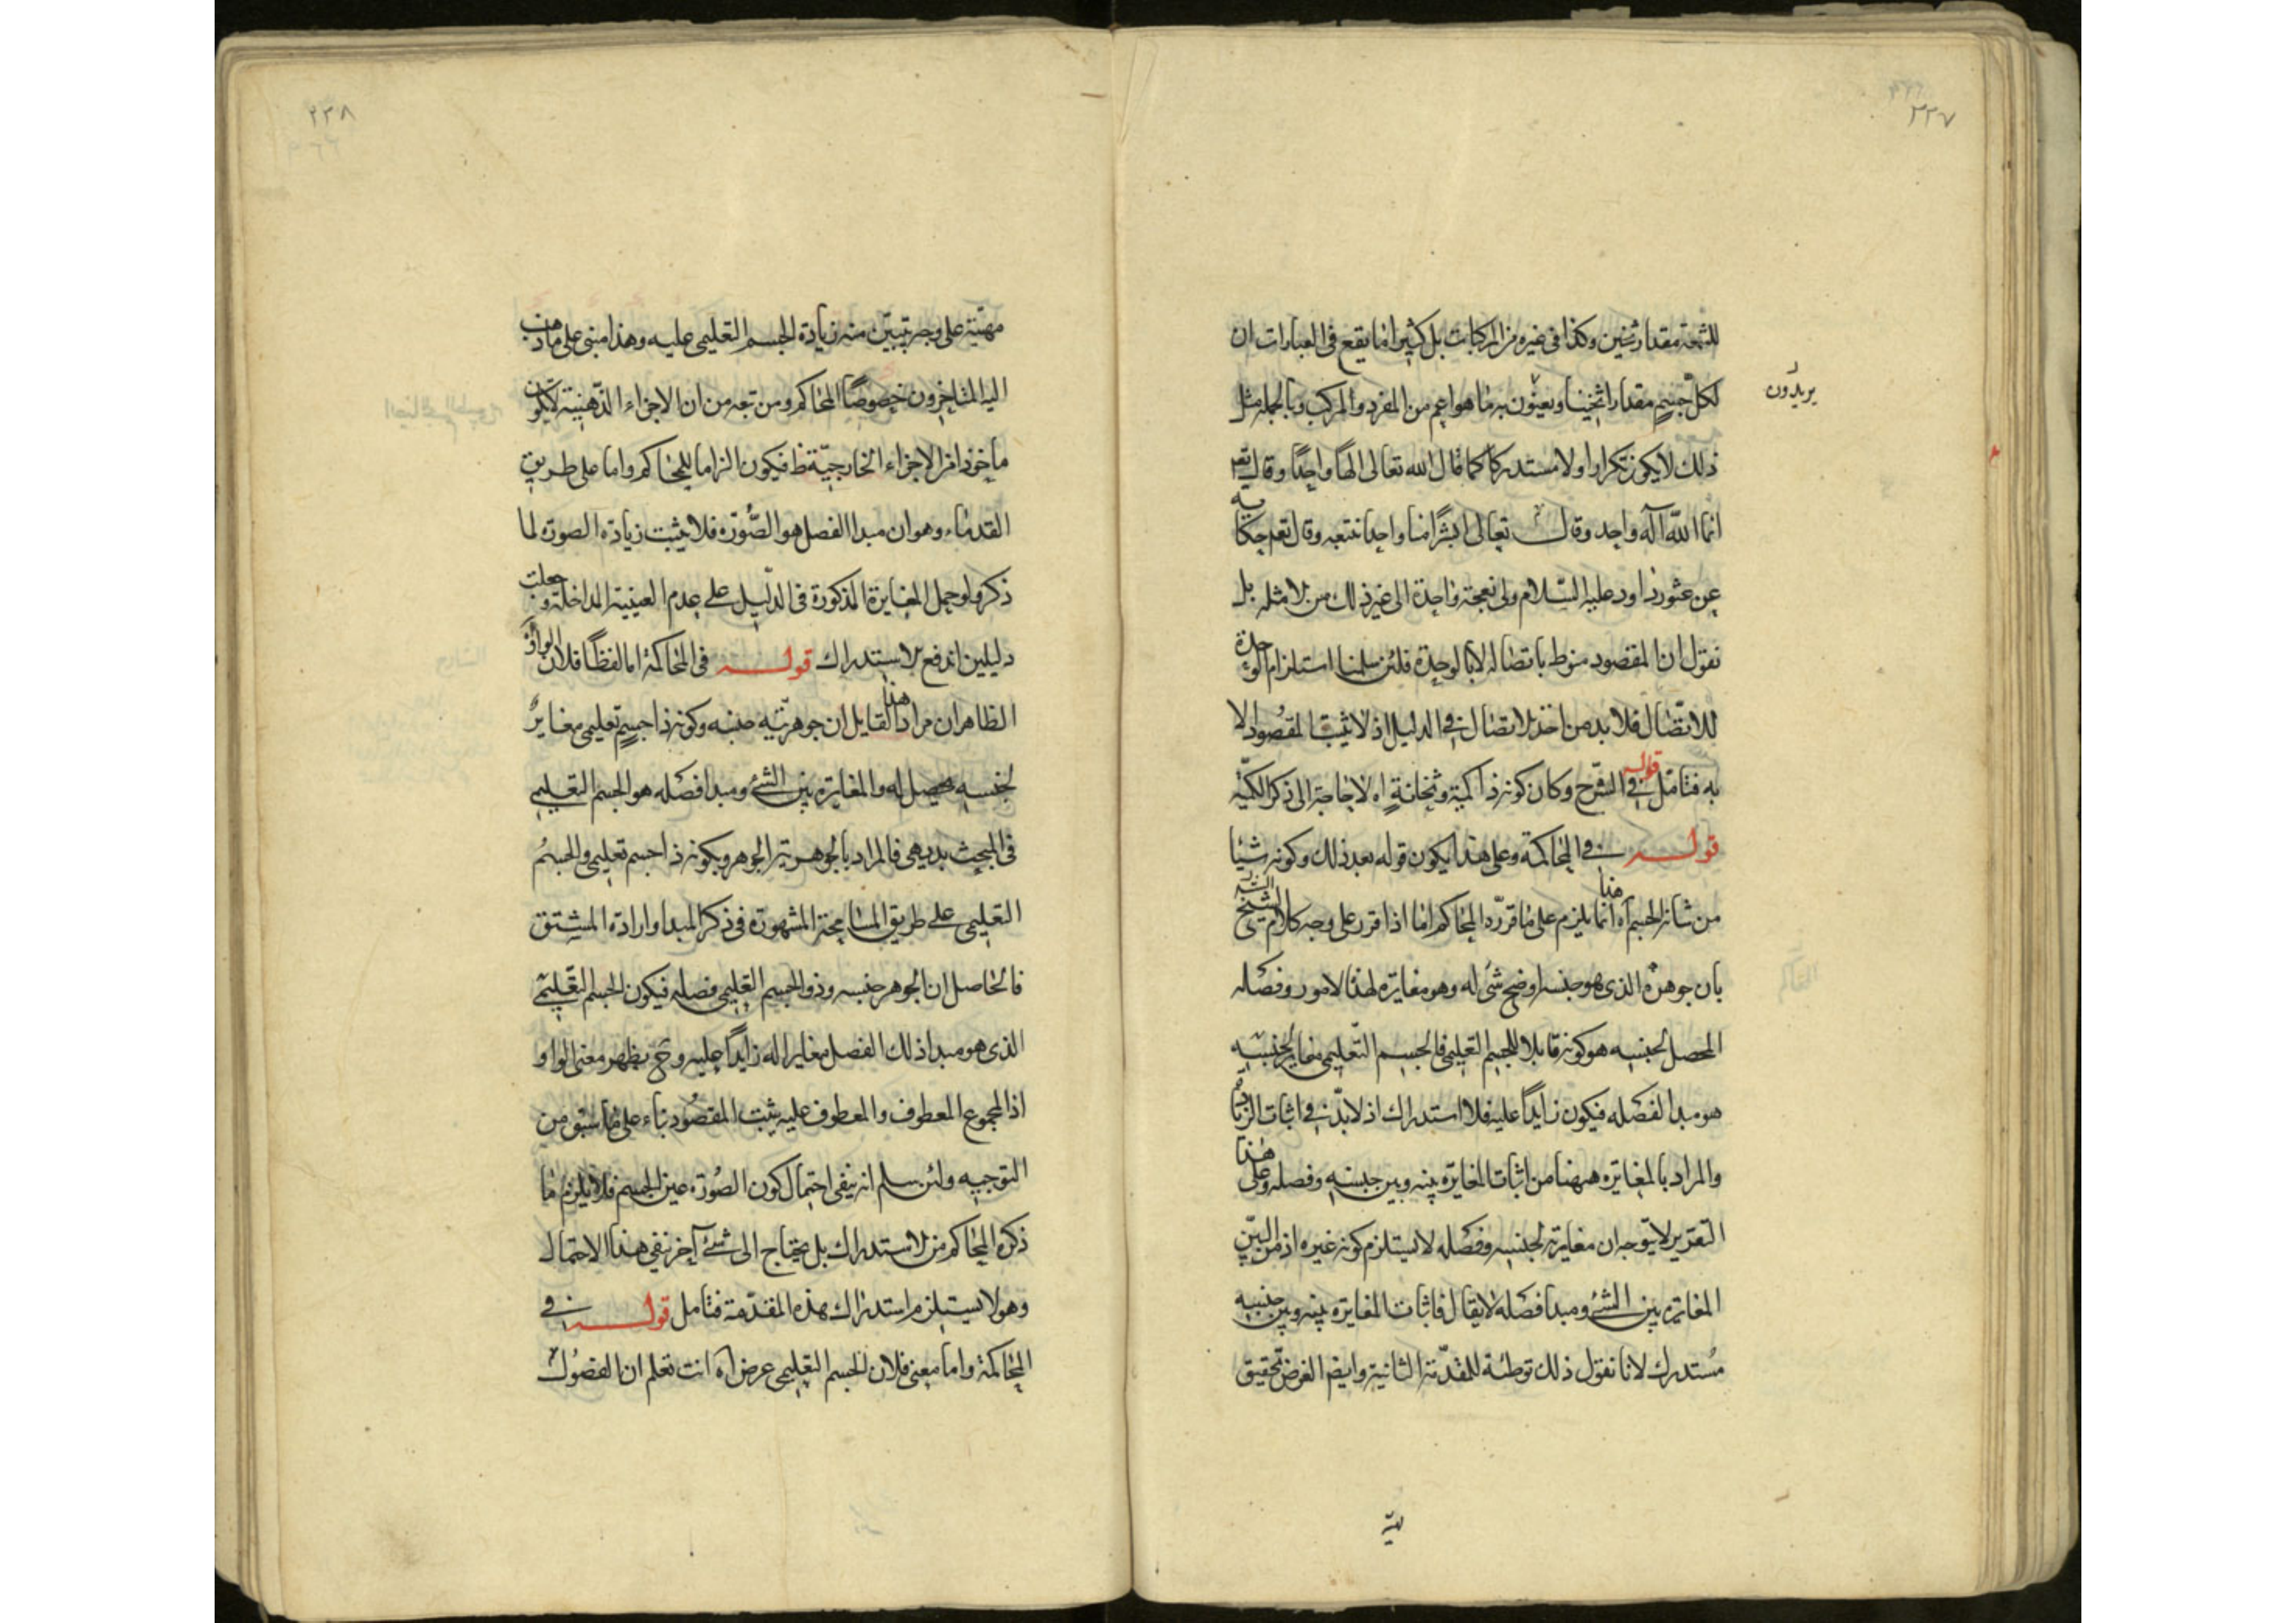 ٢٢٧
للشمعة مقدار ثخين وكذا في غيره من المركبات بل كثيرا ما يقع في العبارات ان
لكل جسم مقدارا ثخينا ويعنون به ما هو اعم من المفرد والمركب وبالجملة مثل
يريدون
ذلك لا يكون تكرارا ولا مستدركا كما قال الله تعالى الها واحدا وقال تعه
انما الله آله واحد وقال تعالى ابشرا منا واحدا نتبعه وقال تعه حكاية
عن داود عليه السلام ولى نعجة واحدة الى غير ذلك من الامثلة بل
نقول ان المقصود منوط باتصاله لا بالوحدة فلئن سلمنا استلزام الوحدة
للاتصال فلا بد من اخذ الاتصال في الدليل اذ لا يثبت المقصود الا
به فتامل قوله في الشرح وكان كونه ذا كمية وثخانة اه لا حاجة الى ذكر الكمية
قوله في المحاكمة وعلى هذا يكون قوله بعد ذلك وكونه شيئا
من شانه الجسم اه هذا انما يلزم على ما قرره المحاكم اما اذا قرر على وجه كلام الشيخ
بان جوهره الذى هو جنسه اوضح شئ له وهو مغايرة لهذا الامور وفصله
المحصل لجنسه هو كونه قابلا للجسم التعليمى فالجسم التعليمى مغاير لجنسه
هو مبدا لفصله فيكون زايدا عليه فلا استدراك اذ لا بد في اثبات الزيادة
والمراد بالمغايرة ههنا من اثبات المغايرة بينه وبين جنسه وفصله وعلى هذا
التقرير لا يتوجه ان مغايرته لجنسه وفصله لا يستلزم كونه غيره اذ من البين
المغايرة بين الشئ ومبدا فصله لا يقال فاثبات المغايرة بينه وبين جنسه
مستدرك لانا نقول ذلك توطئة للمقدمة الثانية وايضا الغرض تحقيق
٢٢٨
مهيته على وجه يتبين منه زيادة الجسم التعليمى عليه وهذا مبنى على ما ذهب
اليه المتاخرون خصوصا المحاكم ومن تبعه من ان الاجزاء الذهنية لا يكون
ماخوذا من الاجزاء الخارجية ظ فيكون الزاما للمحاكم واما على طريق
القدماء وهو ان مبدا الفصل هو الصورة فلا يثبت زيادة الصورة لما
ذكره ولو حمل المغايرة المذكورة فى الدليل على عدم العينية المداخلة وجعلت
دليلين اندفع الاستدراك قوله فى المحاكمة اما لفظا فلان الواو
الظاهر ان مراد هذا القايل ان جوهريته جنسه وكونه ذا جسم تعليمى مغاير
لجنسه محصل له والمغايرة بين الشئ ومبدا فصله هو الجسم التعليمى
فى المبحث بديهى فالمراد بالجوهرية الجوهر وبكونه ذا جسم تعليمى والجسم
التعليمى على طريق المسامحة المشهورة فى ذكر المبدا وارادة المشتق
فالحاصل ان الجوهر جنسه وذو الجسم التعليمى فصله فيكون الجسم التعليمى
الذى هو مبدا ذلك الفصل مغايرا له زايدا عليه وح يظهر معنى الواو
اذ المجموع المعطوف والمعطوف عليه يثبت المقصود بناء على ما سبق من
التوجيه ولئن سلم انه ينفى احتمال كون الصورة عين الجسم فلا يلزم ما
ذكره المحاكم من الاستدراك بل يحتاج الى شئ آخر نفى هذا الاحتمال
وهو لا يستلزم استدراك هذه المقدمة فتامل قوله في
المحاكمة واما معنى فلان الجسم التعليمى عرض اه انت تعلم ان الفصول